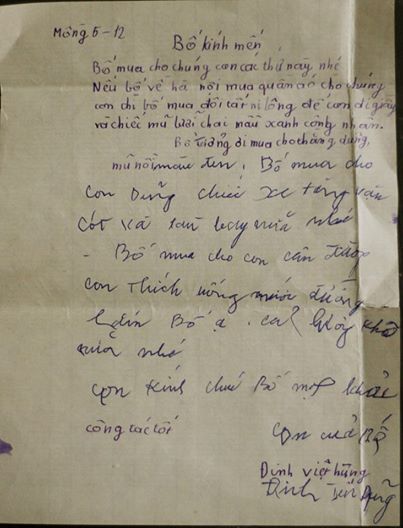 Mồng 5-12
Bố kính mến
Bố mua cho chúng con các thứ này nhé
Nếu bố về hà nôi mua quần áo cho chúng
con thì bố mua đôi tất ni lông để con đi giầy
và chiếc mũ lưỡi chai mầu xanh công nhân.
Bố đi mua cho thằng dũng,
mũ nồi màu đen, Bố mua cho
con Dũng chiếc xe tăng
cót và tàu bay nữa nhé
- Bố mua cho con cân đường
con thích uống nước đường
lắm Bố ạ. cả khô
nữa nhé
con kính chúc Bố mạnh khỏe
công tác tốt
con của Bố
Đinh việt hùng
Đinh Dũng